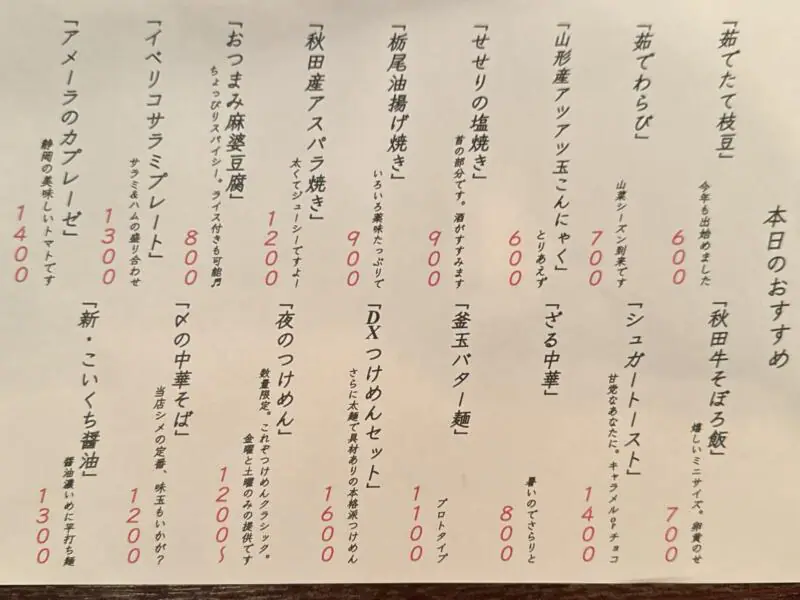 本日のおすすめ
「茹でたて枝豆」
今年も出始めました
600
「茹でわらび」
山菜シーズン到来です
700
「山形産アツアツ玉こんにゃく」
とりあえず
600
「せせりの塩焼き」
首の部分です。酒がすすみます
900
「栃尾油揚げ焼き」
いろいろ薬味たっぷりで
900
「秋田産アスパラ焼き」
太くてジューシーですよー
1200
「おつまみ麻婆豆腐」
ちょっぴりスパイシー。ライス付きも可能♬
800
「イベリコサラミプレート」
サラミ&ハムの盛り合わせ
1300
「アメーラのカプレーゼ」
静岡の美味しいトマトです
1400
「秋田牛そぼろ飯」
嬉しいミニサイズ。卵黄のせ
700
「シュガートースト」
甘党なあなたに。キャラメルorチョコ
1400
「ざる中華」
暑いのでさらりと
800
「釜玉バター麺」
プロトタイプ
1100
「DXつけめんセット」
さらに太麺で具材ありの本格派つけめん
1600
「夜のつけめん」
数量限定。これぞつけめんクラシック。
金曜と土曜のみの提供です
1200~
「〆の中華そば」
当店シメの定番、味玉もいかが?
1200
「新・こいくち醤油」
醤油濃いめに平打ち麺
1300